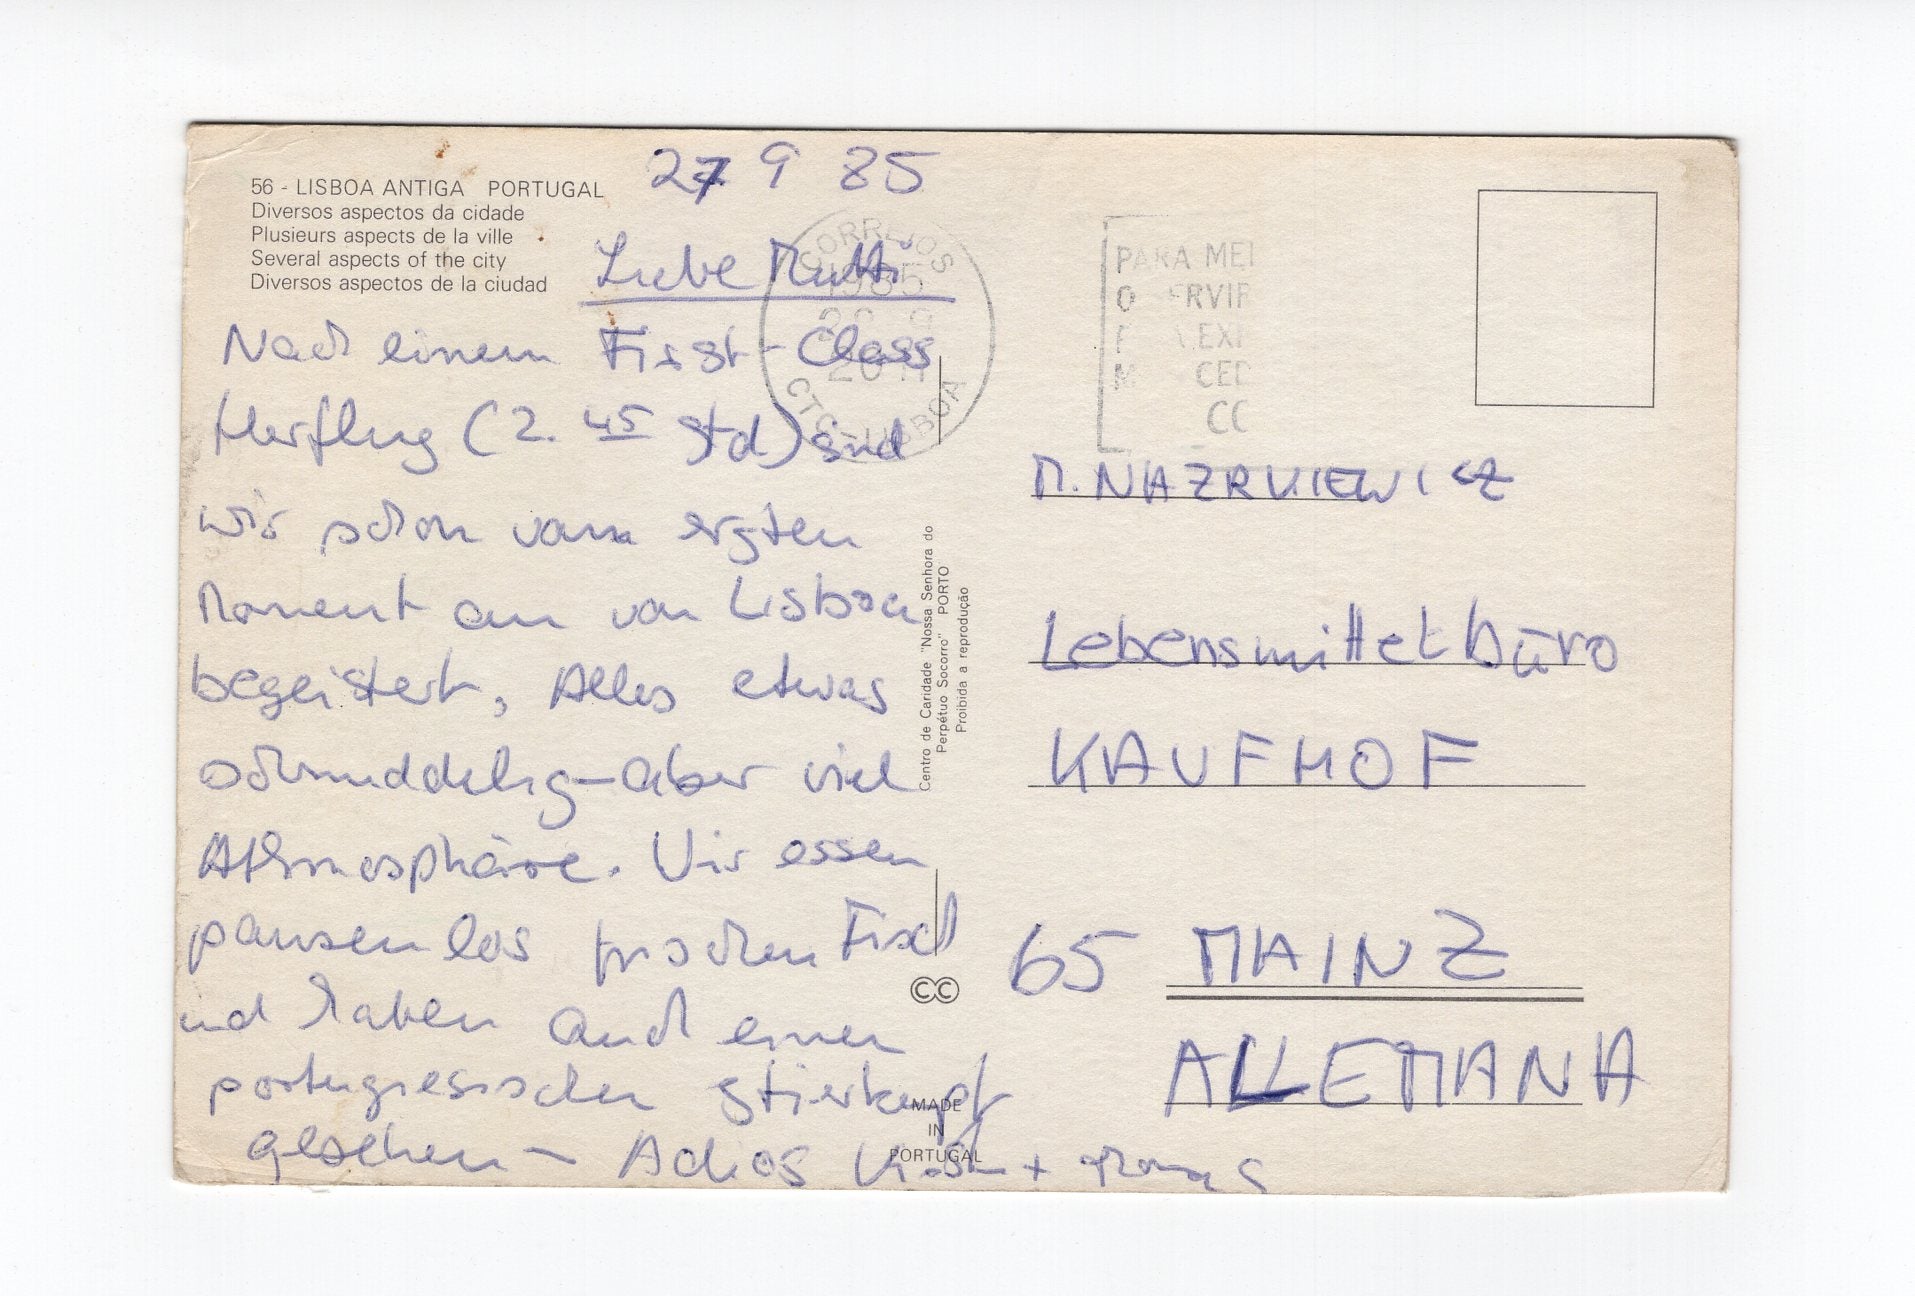 56 - LISBOA ANTIGA PORTUGAL
Diversos aspectos da cidade
Plusieurs aspects de la ville
Several aspects of the city
Diversos aspectos de la ciudad
27 9 85
Liebe Mutti
Nach einem First-Class
Herflug (2. 45 Std) sind
wir schon vom ersten
Moment an von Lisboa
begeistert, Alles etwas
schmuddelig - aber viel
Athmosphäre. Wir essen
pausenlos frischen Fisch
und haben auch einen
portugiesischen Stierkampf
gesehen - Adios + Thomas
CORREIOS
1985
CTC - LISBOA
PARA MEL
O SERVIR
EXI
CED
CO
Centro de Caridade "Nossa Senhora do
Perpétuo Socorro" PORTO
Proibida a reprodução
CC
MADE
IN
PORTUGAL
M. NAZRKIEWICZ
Lebensmittelbüro
KAUFHOF
65 MAINZ
ALLEMANA